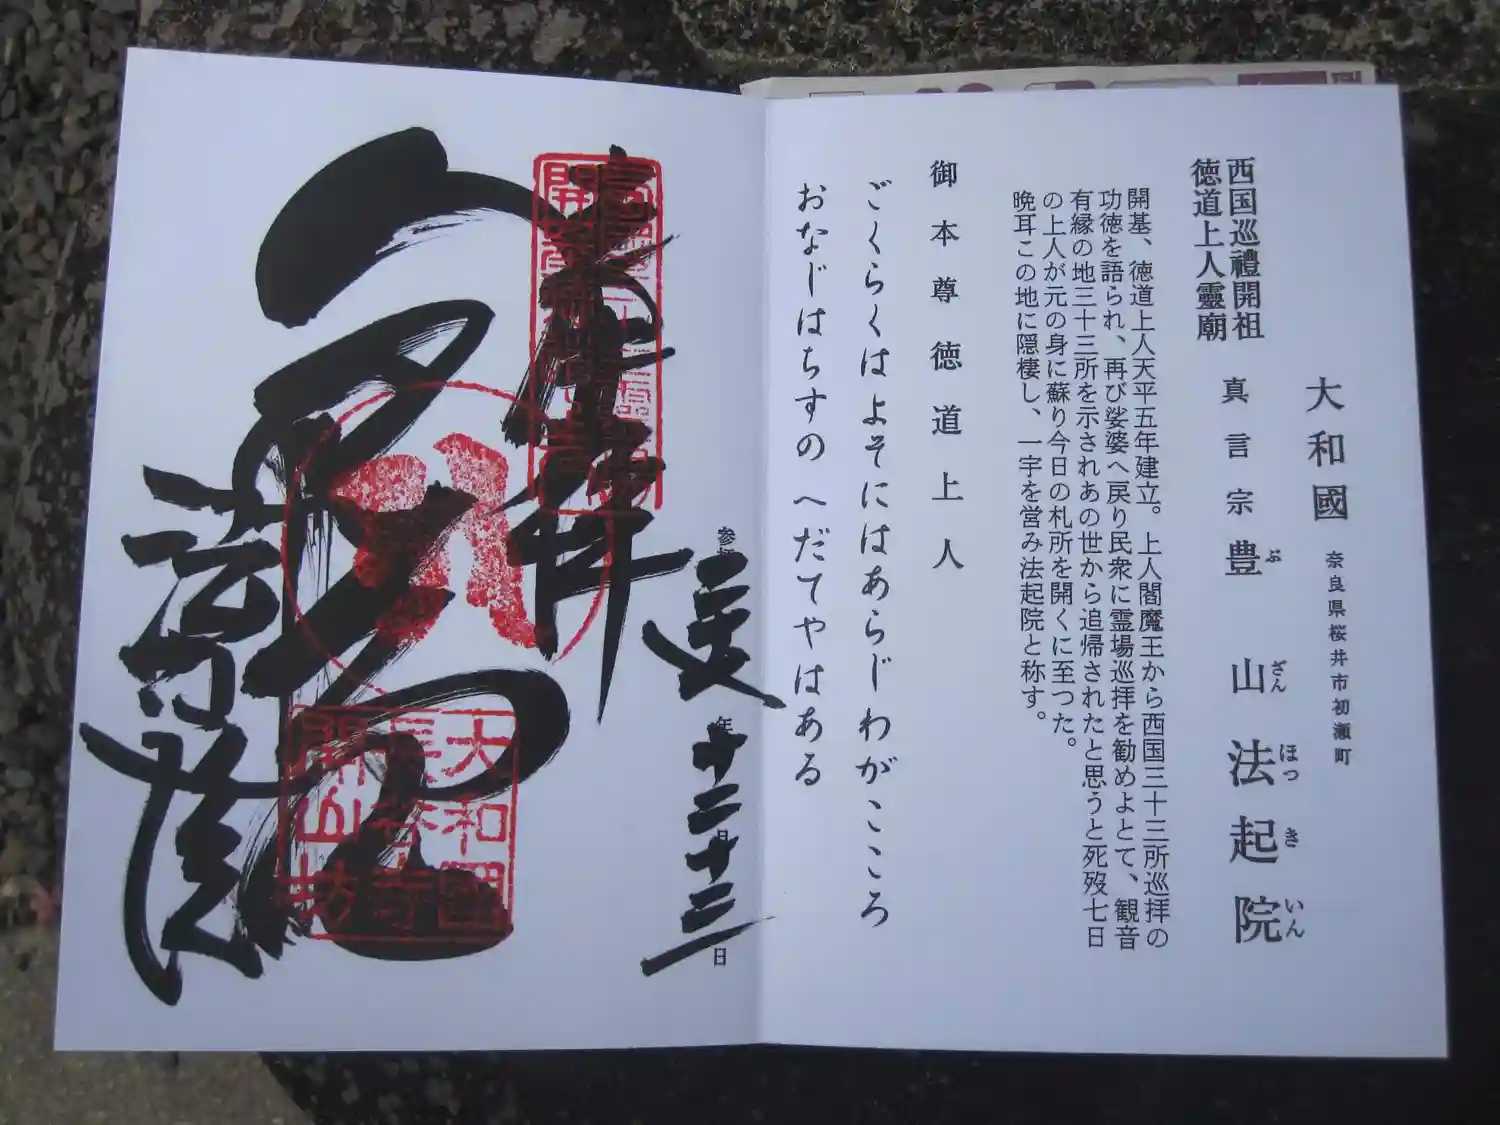 大和國 奈良県桜井市初瀬町
西国巡禮開祖
徳道上人靈廟
真言宗豊山法起院
ぶざんほつきいん
開基、徳道上人天平五年建立。上人閻魔王から西国三十三所巡拝の
功徳を語られ、再び娑婆へ戻り民衆に霊場巡拝を勧めよとて、観音
有縁の地三十三所を示されあの世から追帰されたと思うと死歿七日
の上人が元の身に蘇り今日の札所を開くに至つた。
晩耳この地に隠棲し、一宇を営み法起院と称す。
御本尊 徳道上人
ごくらくはよそにはあらじわがこころ
おなじはちすの へだてやはある
奉拝
年十二月十三日
法起院
大和國
長谷寺
開山坊